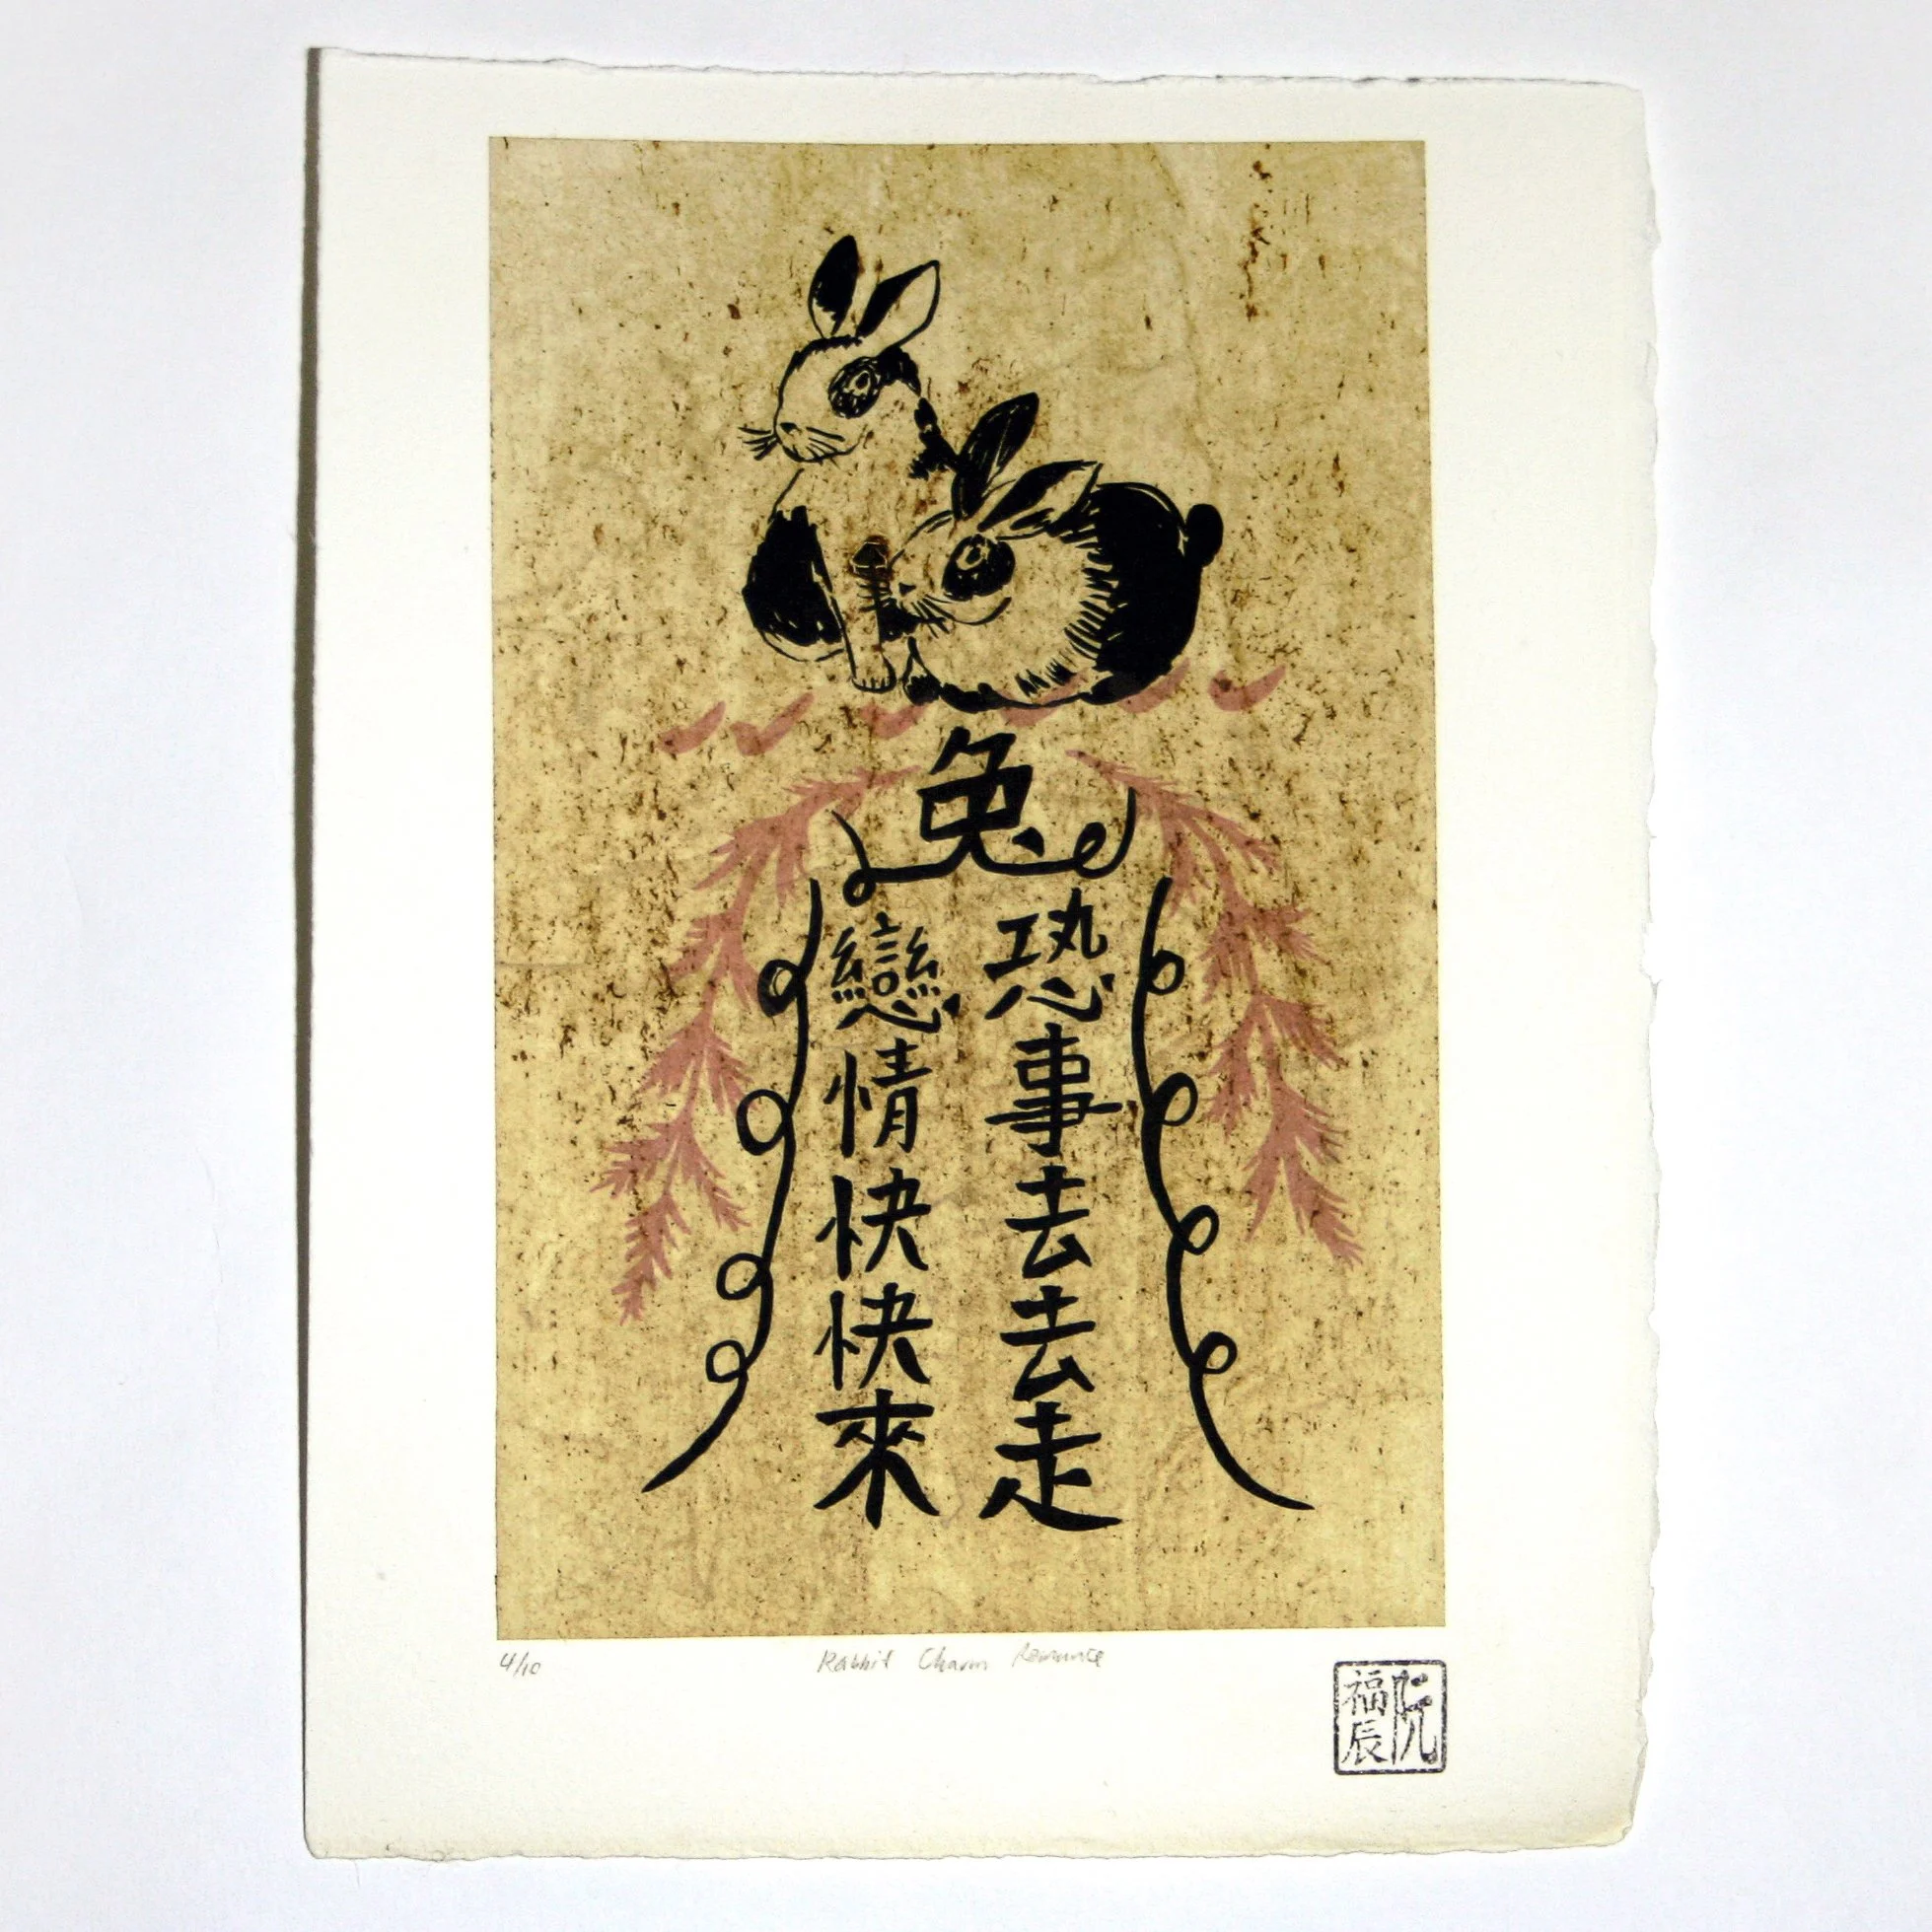 兔
恐事去去走
戀情快快來
4/10
Rabbit Charm Romance
阮福辰